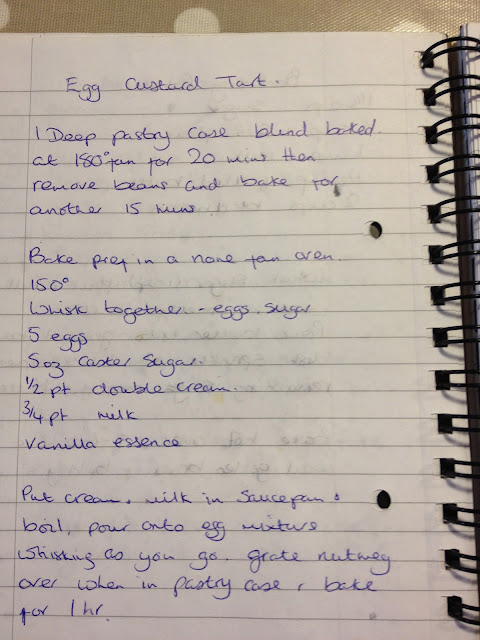 Egg Custard Tart.
1 Deep pastry case blind baked.
at 180° fan for 20 mins then
remove beans and bake for
another 15 mins.
Bake pref in a none fan oven.
150°
Whisk together - eggs. sugar
5 eggs
5oz Caster Sugar.
1/2 pt double cream.
3/4 pt milk
Vanilla essence
Put cream & milk in Saucepan &
boil, pour onto egg mixture
whisking as you go. grate nutmeg
over when in pastry case & bake
for 1 hr.